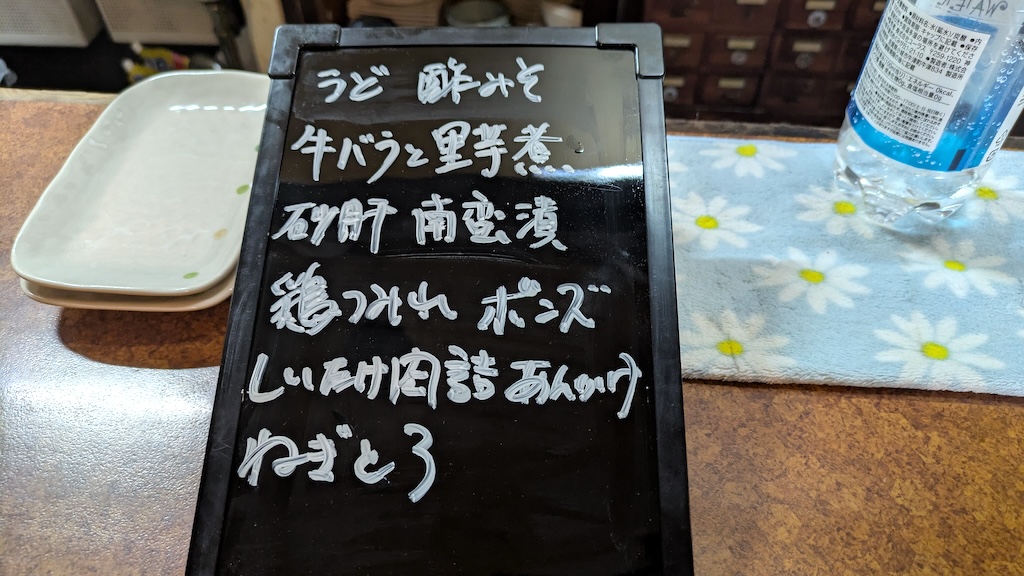 うど 酢みそ
牛バラと里芋煮
砂肝 南蛮漬
鶏つみれ ポンズ
しいたけ肉詰あんかけ
ねぎとろ